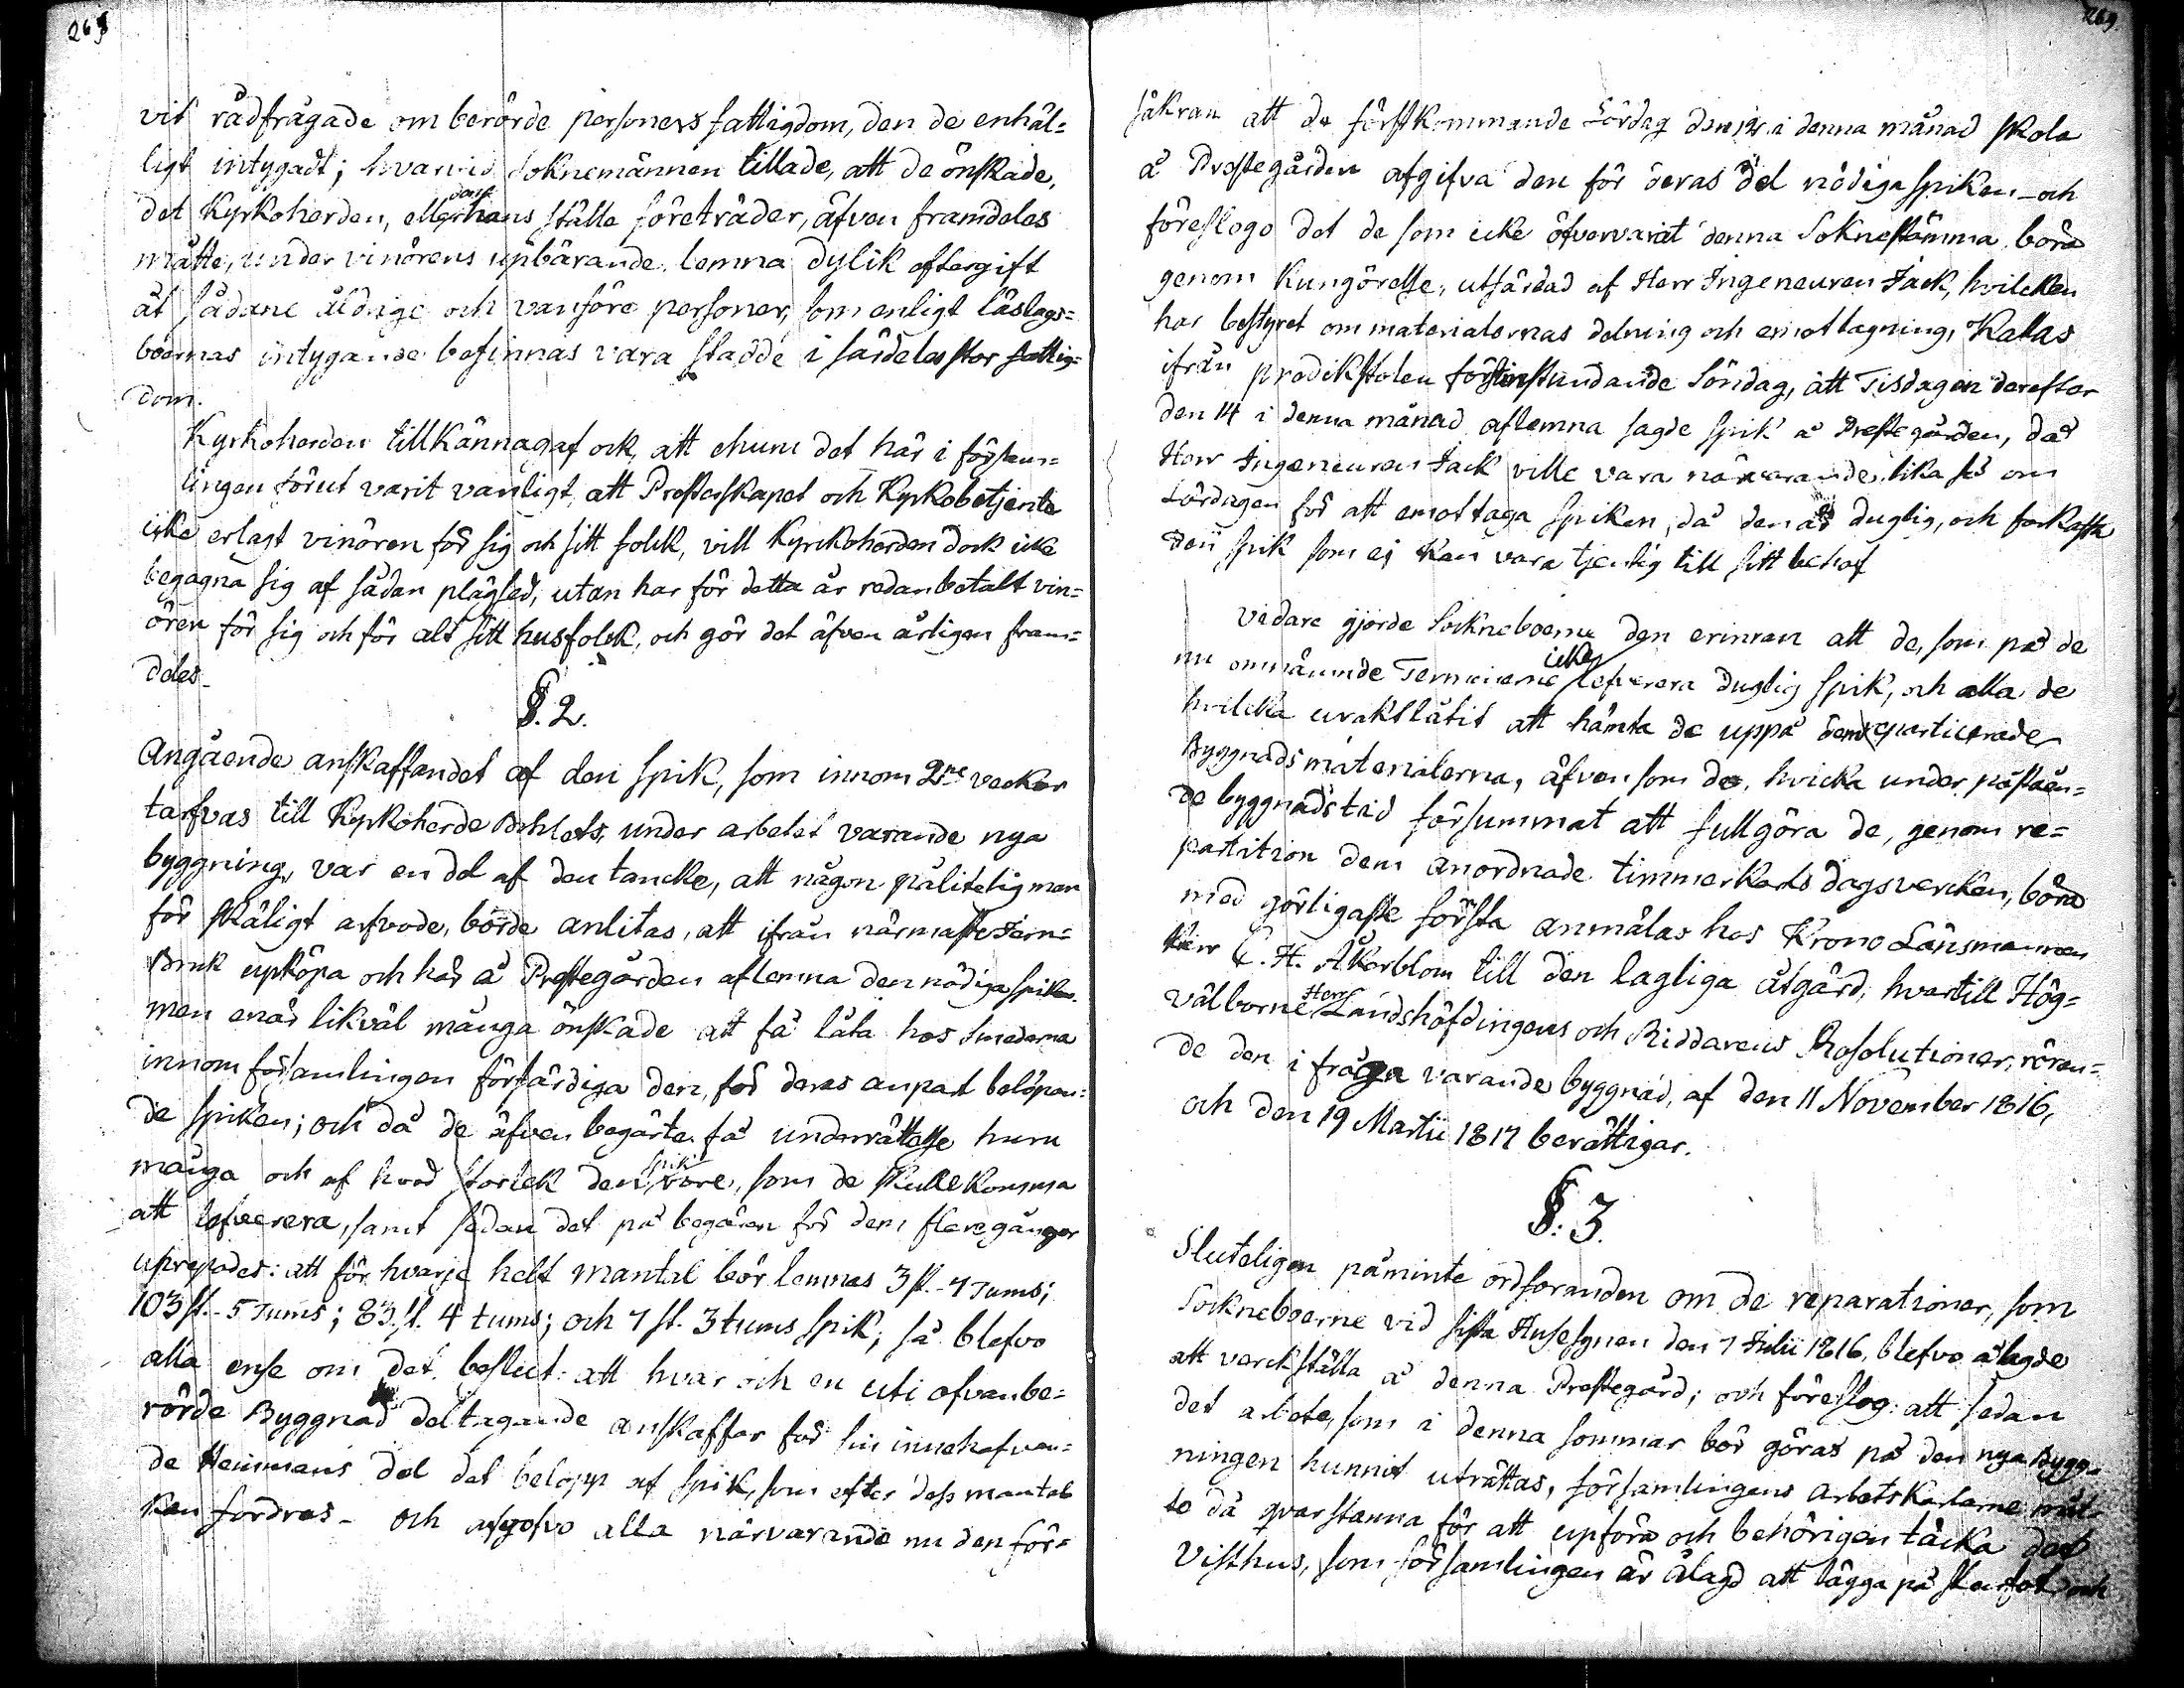 268
vit rådfrågade om berörde personers fattigdom, den de enhäl=
ligt intygadt; hvarvid Soknemännen tillade, att de önskade,
det Kyrkoherden, eller hans ställe företräder, äfven framdeles
måtte, under vinörens upbärande, lemna dylik eftergift
åt sådane åldrige och vanföre personer, som enligt läslags=
boernas intygande befinnas vara stadde i särdeles stor fattig=
dom.
Kyrkoherden tillkännagaf ock, att ehuru det här i försam=
lingen förut varit vanligt, att Presterskapet och Kyrkobetjente
icke erlagt vinören för sig och sitt folk, vill Kyrckoherden dock icke
begagna sig af sådan plägsed, utan har för detta år redan betalt vin=
ören för sig och för alt sitt husfolck, och gör det äfven årligen fram=
deles_
§. 2.
Angående anskaffandet af den spik, som innom 2ne veckor
tarfvas till Kyrkoherde Bohlets, under arbetet varande nya
byggning, var en del af den tancke, att någon pålitelig man
för skäligt arfvode, borde anlitas, att ifrån närmaste Jern=
Bruk upköpa och här å Prestegården aflemna den nödiga spiken.
men enär likväl många önskade att få låta hos Smederna
innom församlingen förfärdiga den, för deras anpart belöpan=
de spiken; och då de äfven begärte få underrättelse huru
många och af hvad storlek den spik vore, som de skulle komma
att lefverera, samt sedan det på begäran för dem flere gånger
uprepades: att för hvarje helt mantal bör lemnas 3 st. 7 Tums;
103 st. 5 Tums; 83 st. 4 tums; och 7 st. 3 tums spik; så blefvo
alla ense om det beslut: att hvar och en uti ofvanbe=
rörde Byggnad deltagande anskaffar för sin innehafvan=
de Hemmans del det belopp af spik, som efter dess mantal
kan fordras_ och afgofvo alla närvarande nu den för=
269.
säkran att de förstkommande Lördag den 12 i denna månad skola
å Prestegården afgifva den för deras del nödiga spiken_ och
föreslogo det de som icke öfvervarit denna Sokne stämma, böra
genom Kungörelse, utfärdad af Herr Ingeneuren Jack, hvilcken
har bestyret om materialernas delning och emottagning, Kallas
ifrån predikstolen förstinstundande Söndag, att Tisdagen derefter
den 14 i denna månad aflemna sagde spik å Prestegården, då
Herr Ingeneuren Jack ville vara närvarande, lika så om
Lördagen för att emottaga spiken, då den är duglig, och förkasta
den spik som ej kan vara tjenlig till sitt behof
Vidare gjorde Sockneboerne den erinran att de, som på de
nu omnämnde Terminerne icke lefverera duglig spik, och alla de
hvilcka uraktlåtit att hämta de uppå dem reparticerade
Byggnads materialerna, äfven som de, hvicka under påståen=
de byggnadstid försummat att fullgöra de, genom re=
partition dem anordnade timmerkarls dagsvercken, böra
med görligaste första anmälas hos Krono Länsmannen
Herr C. H. Åkerblom till den lagliga åtgärd, hvartill Hög=
välborne Herr Landshöfdingens och Riddarens Resolutioner, rören=
de den i fråga varande byggnad, af den 11 November 1816,
och den 19 Martii 1817 berättigar.
§. 3.
Sluteligen påminte ordföranden om de reparationer, som
Sockneboerne vid sista Husesynen den 7 Julii 1816, blefvo ålagde
att verckställa å denna Prestegård; och föreslog: att sedan
det arbete, som i denna sommar bör göras på den nya Bygg=
ningen hunnit uträttas, församlingens arbetskarlarne måt=
te då qvarstanna för att upföra och behörigen täcka det
Visthus, som församlingen är ålagd att lägga på stenfot och